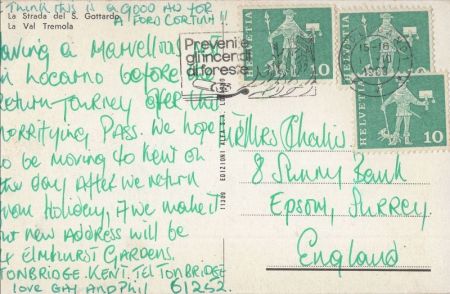 I think this is a good ad for
A Ford Cortina!!
La Strada del S. Gottardo
La Val Tremola
Having a Marvellous
in Locarno before the
return journey over this
horrifying Pass. We hope
to be moving to Kent on
the day after we return
from Holiday, if we make it
our new address will be
Elmhurst Gardens.
TONBRIDGE. KENT. TEL TONBRIDGE
love GAY AND Phil 61252.
Prevenite
gli incendi
di foreste
HELVETIA 10
HELVETIA 10
HELVETIA 10
8 Sunny Bank
Epsom, Surrey
England